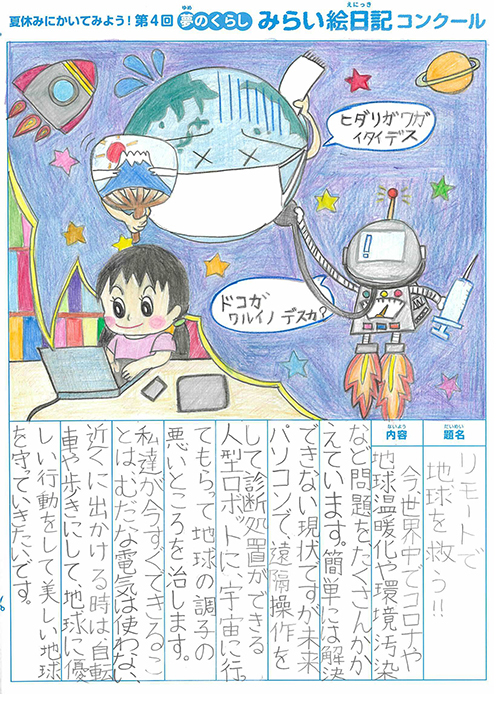 夏休みにかいてみよう！第4回 夢のくらし みらい絵日記 コンクール
ゆめ
えにっき
ヒダリガワガ
イタイデス
！
ドコガ
ワルイノ デスカ？
だいめい
題名
リモートで
地球を救う!!
ないよう
内容
今世界中でコロナや
地球温暖化や環境汚染
など問題をたくさんかか
えています。簡単には解決
できない現状ですが未来
パソコンで、遠隔操作を
して診断処置ができる
人型ロボットに、宇宙に行っ
てもらって地球の調子の
悪いところを治します。
私達が今すぐできるこ
とは、むだな電気は使わない、
近くに出かける時は、自転
車や歩きにして、地球に優
しい行動をして美しい地球
を守っていきたいです。